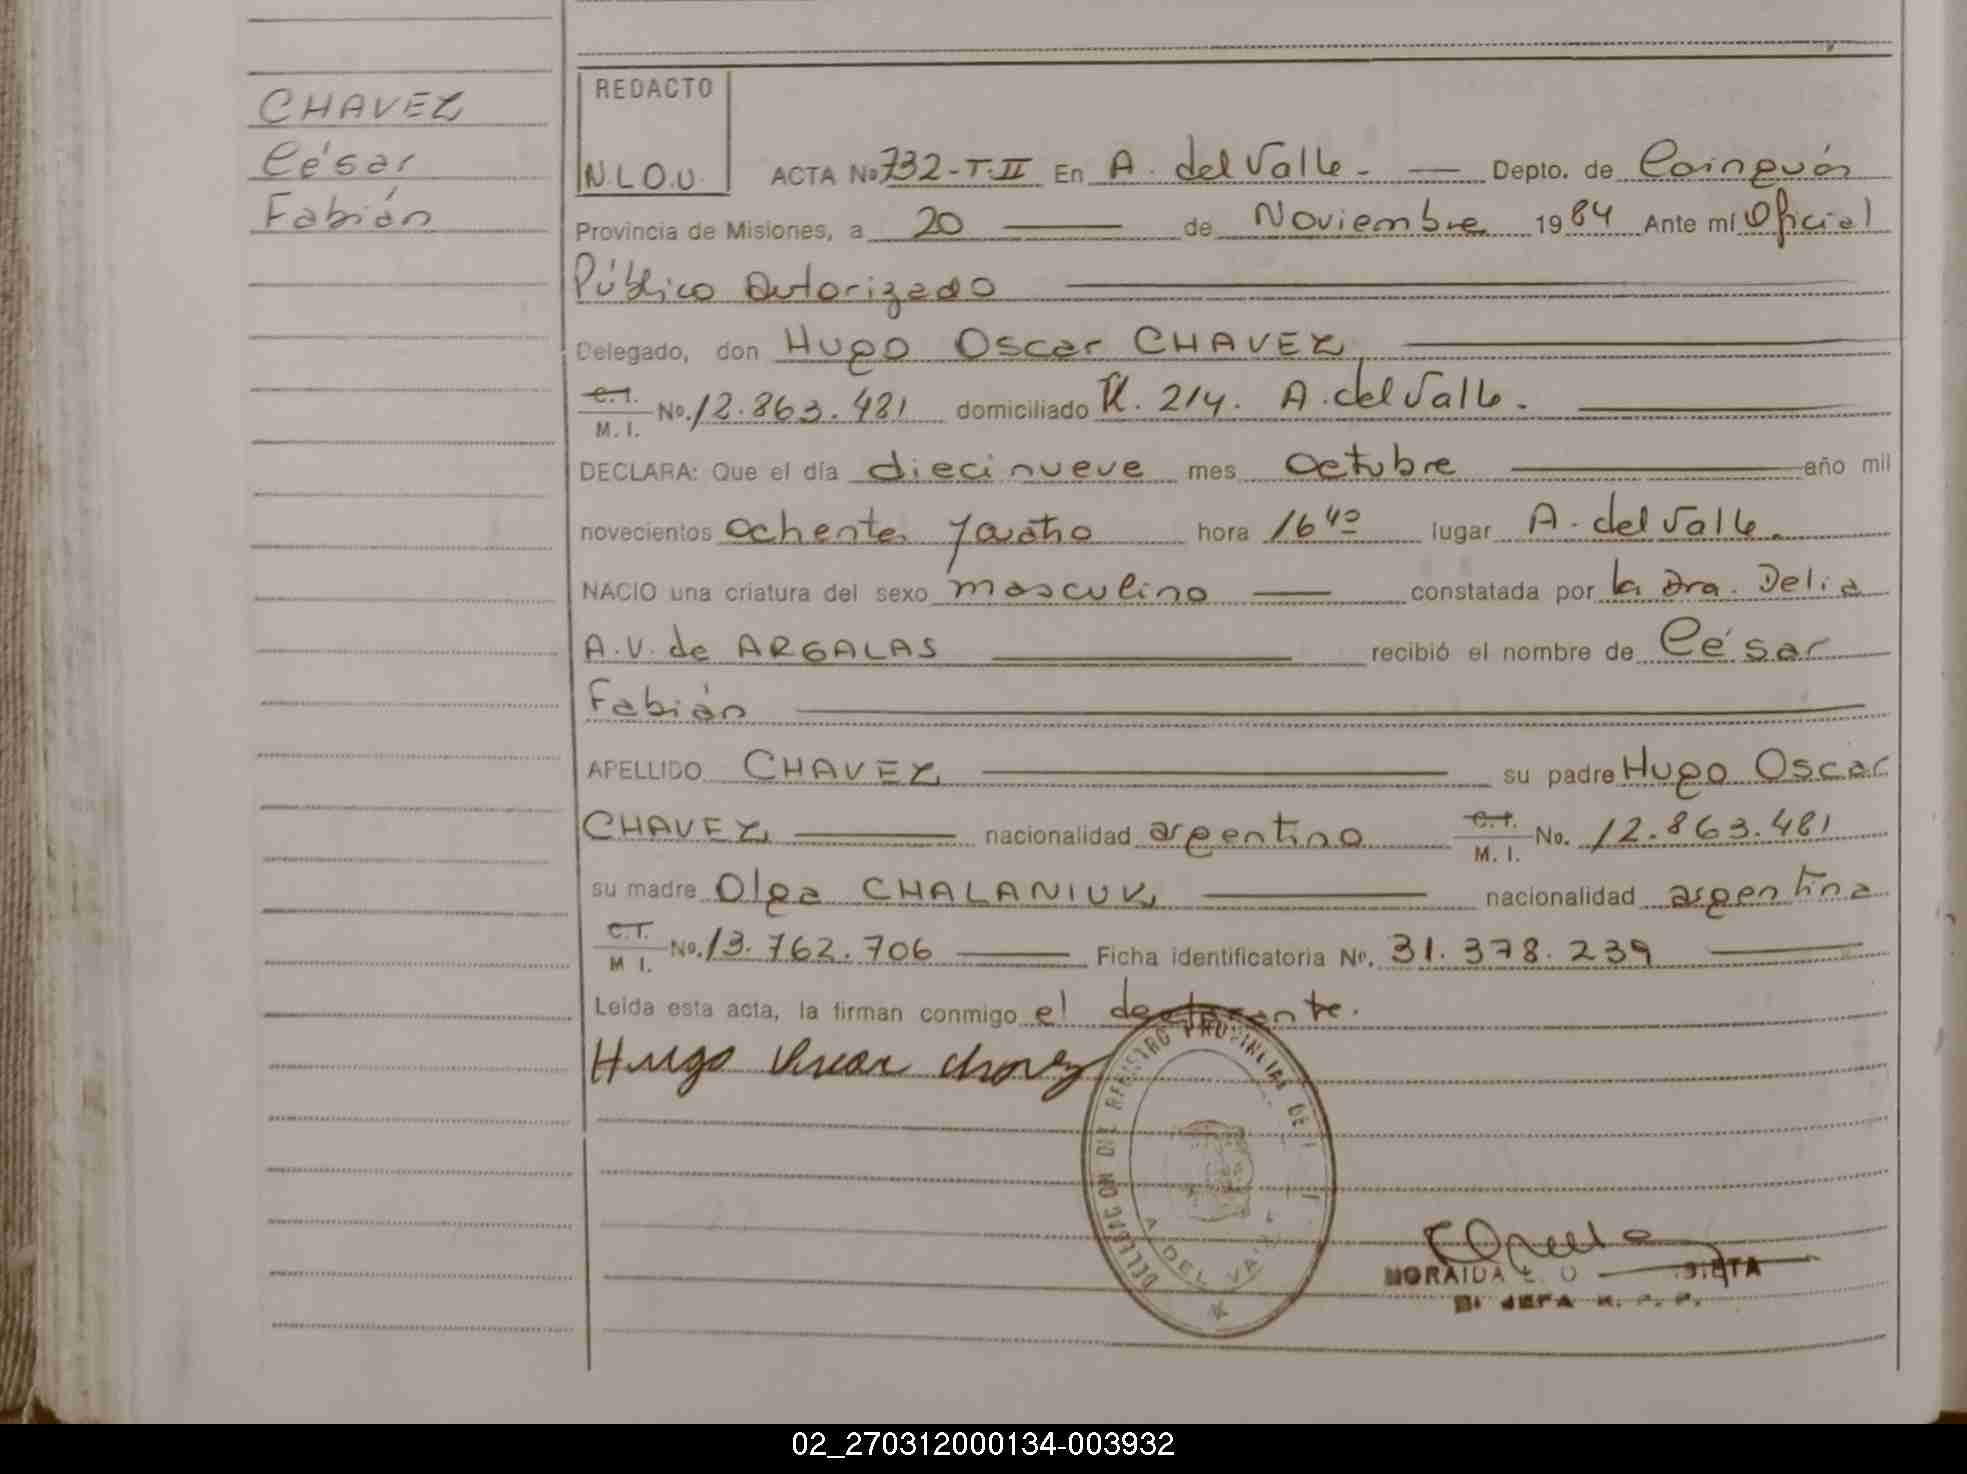 CHAVEZ
César
Fabián
REDACTO
N.L.O.U.
ACTA No 732-T.II En A. del Valle - Depto. de Cainguás
Provincia de Misiones, a 20 de Noviembre 1984 Ante mí Oficial
Público Autorizado
Delegado, don Hugo Oscar CHAVEZ
C.I.
M. I. No. 12.863.481 domiciliado K. 214. A. del Valle.
DECLARA: Que el día diecinueve mes octubre año mil
novecientos ochenta y cuatro hora 16 40 lugar A. del Valle.
NACIO una criatura del sexo masculino constatada por la Dra. Delia
A.V. de ARGALAS recibió el nombre de César
Fabián
APELLIDO CHAVEZ su padre Hugo Oscar
CHAVEZ nacionalidad argentino C.I. M. I. No. 12.863.481
su madre Olga CHALANIUK nacionalidad argentina
C.I.
M I. No. 13.762.706 Ficha identificatoria Nº. 31.378.239
Leída esta acta, la firman conmigo el declarante.
Hugo Oscar Chavez
DELEGACION DEL REGISTRO PROVINCIAL DE
A. DEL VALLE
MORAIDA
JEFA R. P. P.
02_270312000134-003932